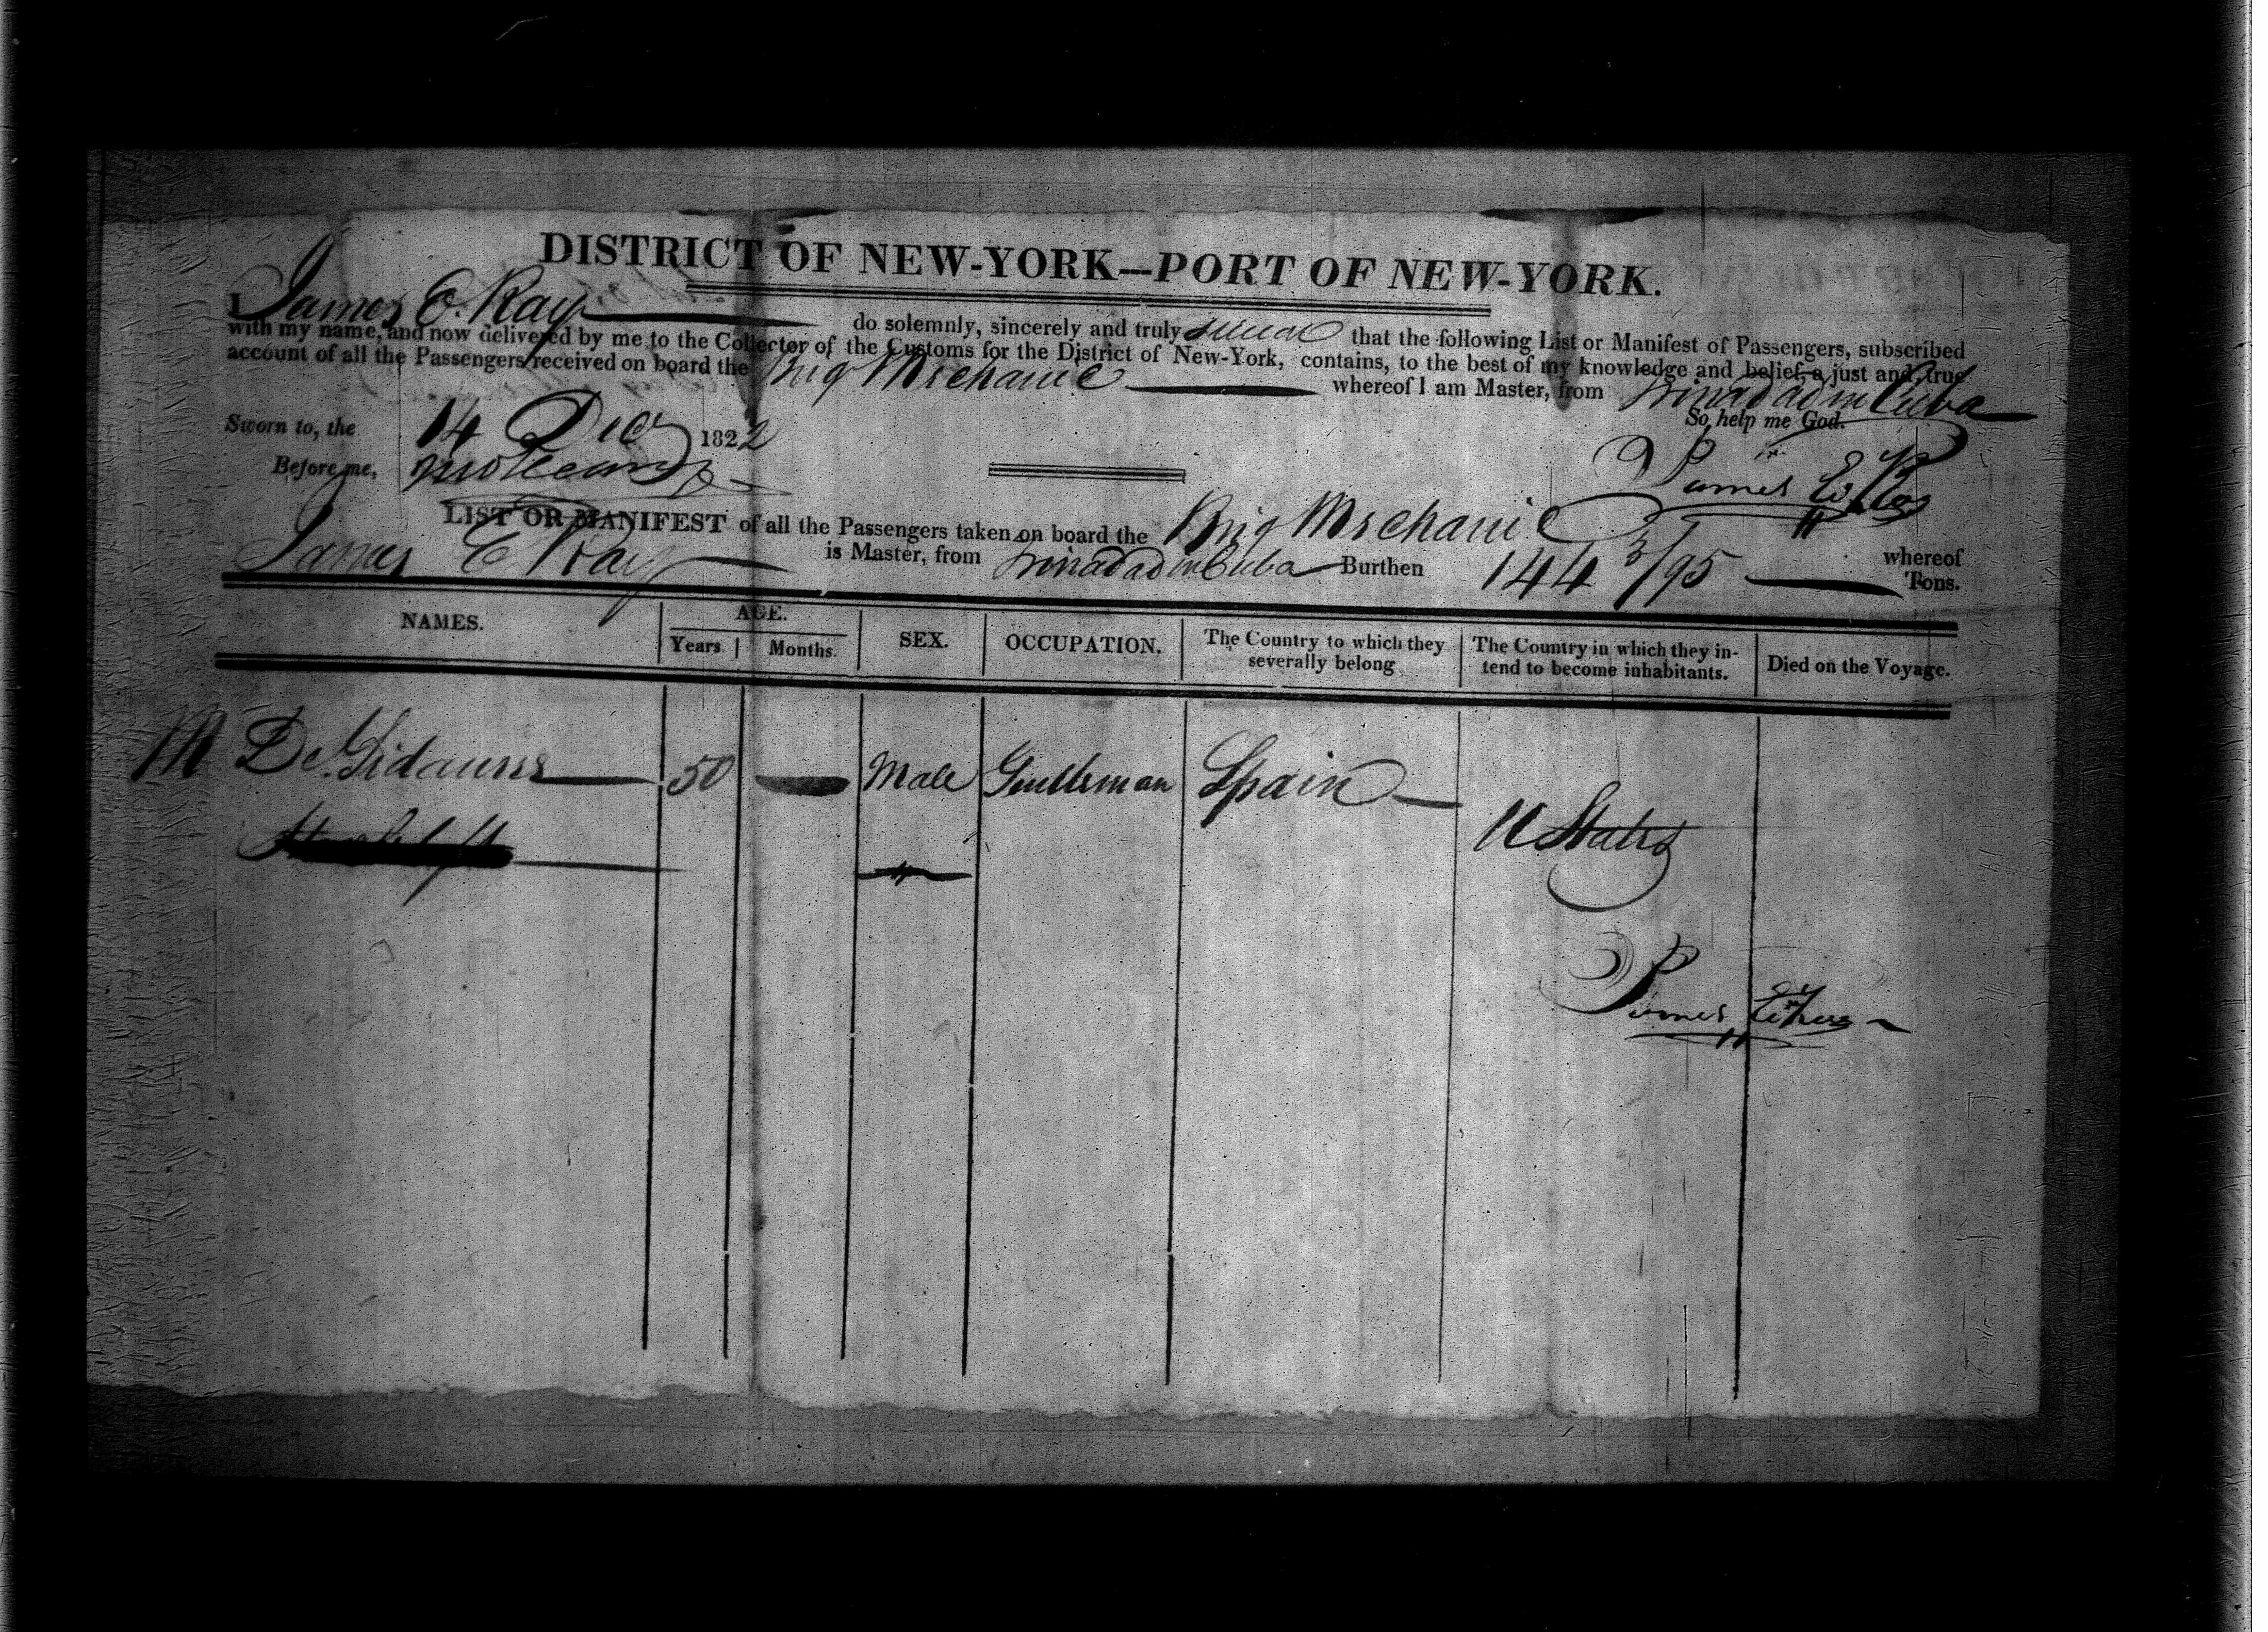 DISTRICT OF NEW-YORK—PORT OF NEW-YORK.
I James E. Ray do solemnly, sincerely and truly swear that the following List or Manifest of Passengers, subscribed
with my name, and now delivered by me to the Collector of the Customs for the District of New-York, contains, to the best of my knowledge and belief, a just and true
account of all the Passengers received on board the Brig Mechanic whereof I am Master, from Trinadad in Cuba
So help me God.
Sworn to, the 14 Decr 1822
Before me,
James E. Ray
LIST OR MANIFEST of all the Passengers taken on board the Brig Mechanic whereof
James E Ray is Master, from Trinadad in Cuba Burthen 144 3/95 Tons.
NAMES. AGE. SEX. OCCUPATION. The Country to which they severally belong The Country in which they intend to become inhabitants. Died on the Voyage.
Years Months.
M De 50 Male Gentleman Spain
U States
James E Ray